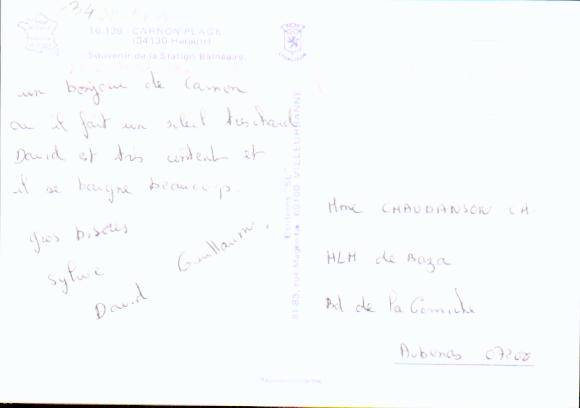 34
16.139 - CARNON-PLAGE
(34130-Hérault)
Souvenir de la Station Balnéaire.
un bonjour de Carnon
ou il fait un soleil très chaud
David et très content et
il se baigne beaucoup.
gros bisous
Sylvie
David Guillaume.
Editions "SL"
81-83, rue Magenta 69100 VILLEURBANNE
Mme CHAUDANSON CH.
HLM de Baza
Bd de la Corniche
Aubenas 07200